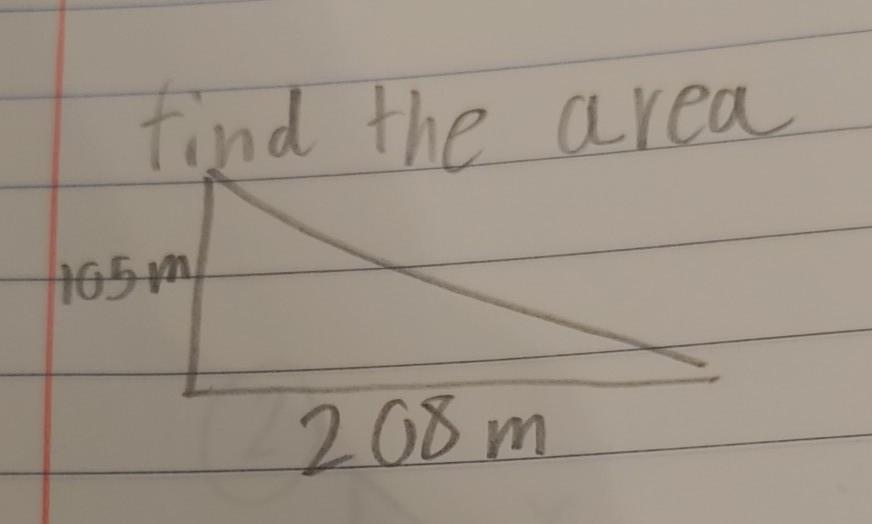 find the area
105m
208 m